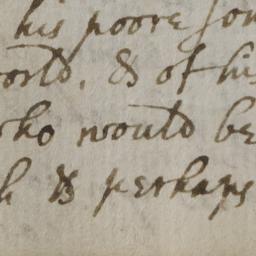 his poore son
orld, & of his
who would be
h & perhaps